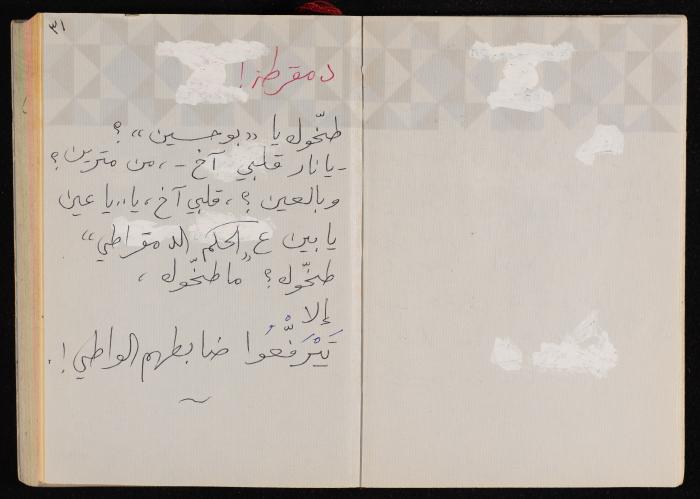 ٣١
دمقرطة!
طخّوك يا «بوحسين»؟
- يا نار قلبي آخ -، من مترين؟
وبالعين؟، قلبي آخ، يا.. يا عين
يا بين ع «الحكم الدمقراطي»
طخّوك؟ ما طخّوك،
إلا
تَيْرَفّعُوا ضابطهم الواطي!.